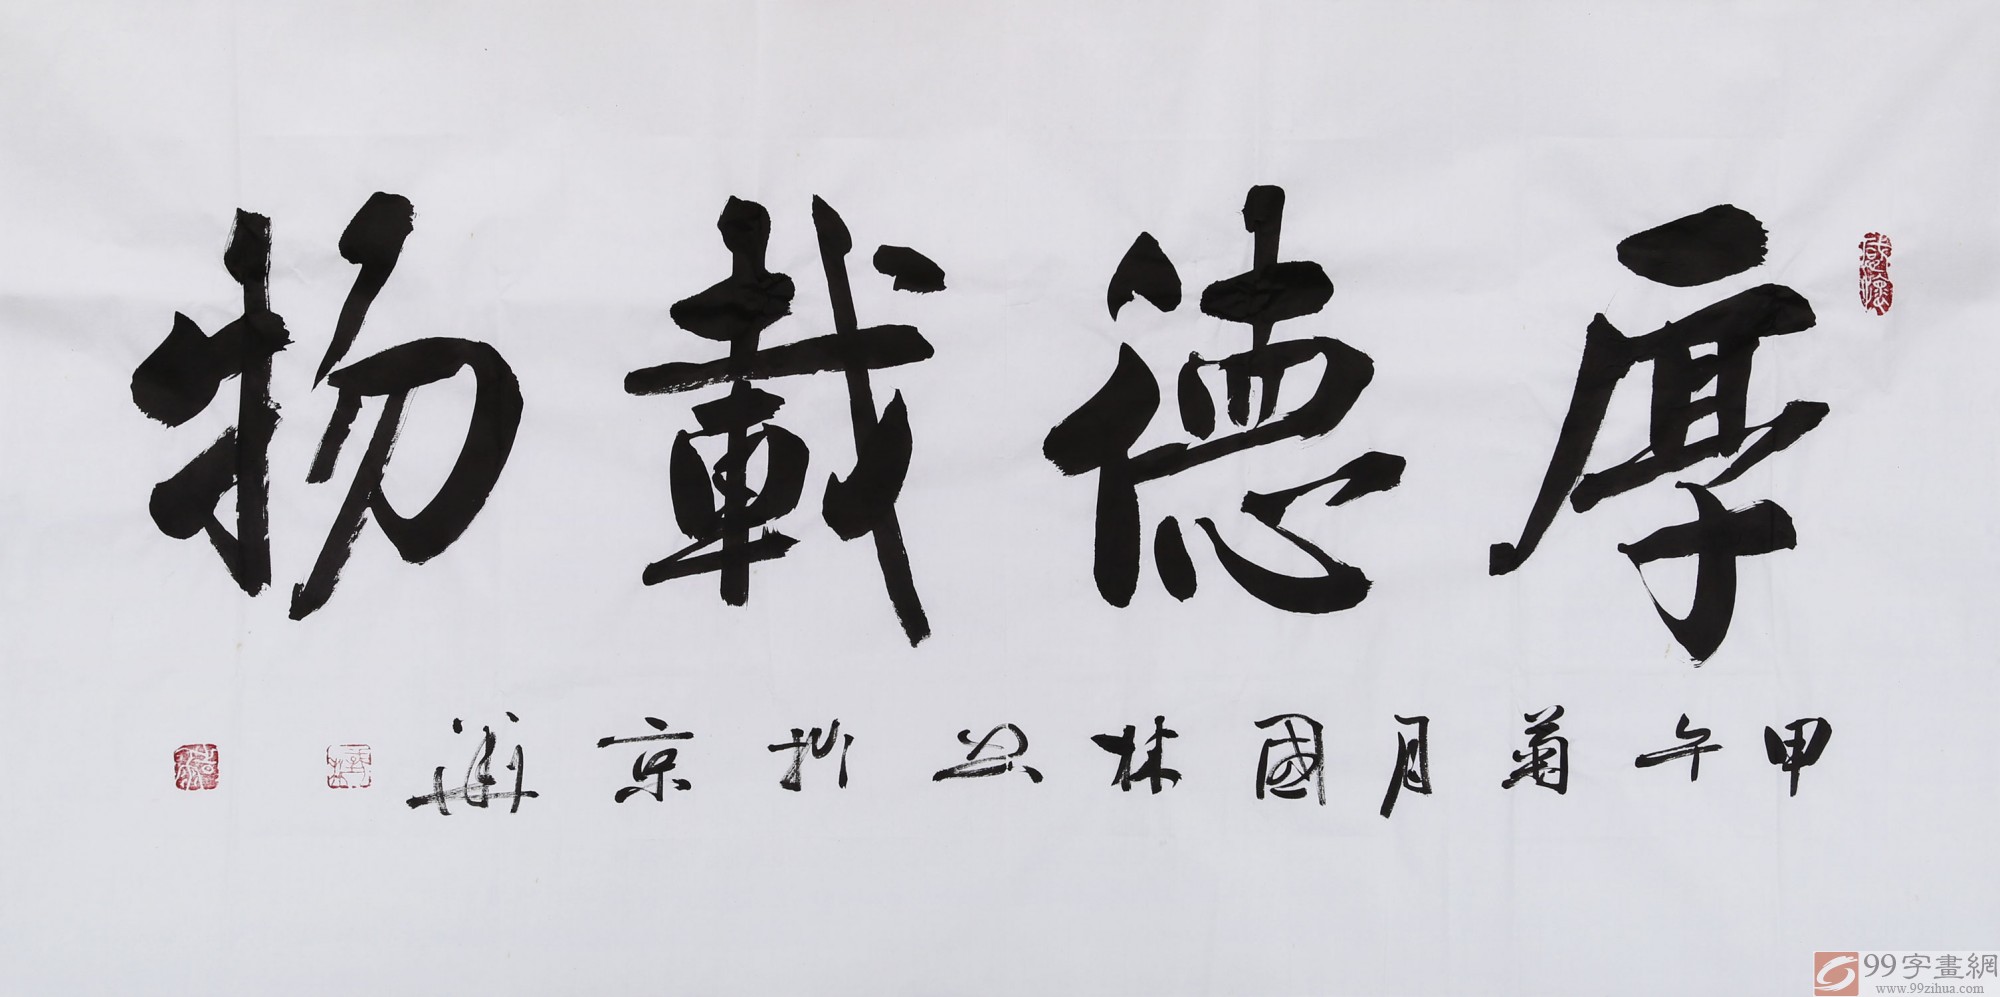 厚德載物
甲午菊月國林书於京華
99字畫網
www.99zihua.com